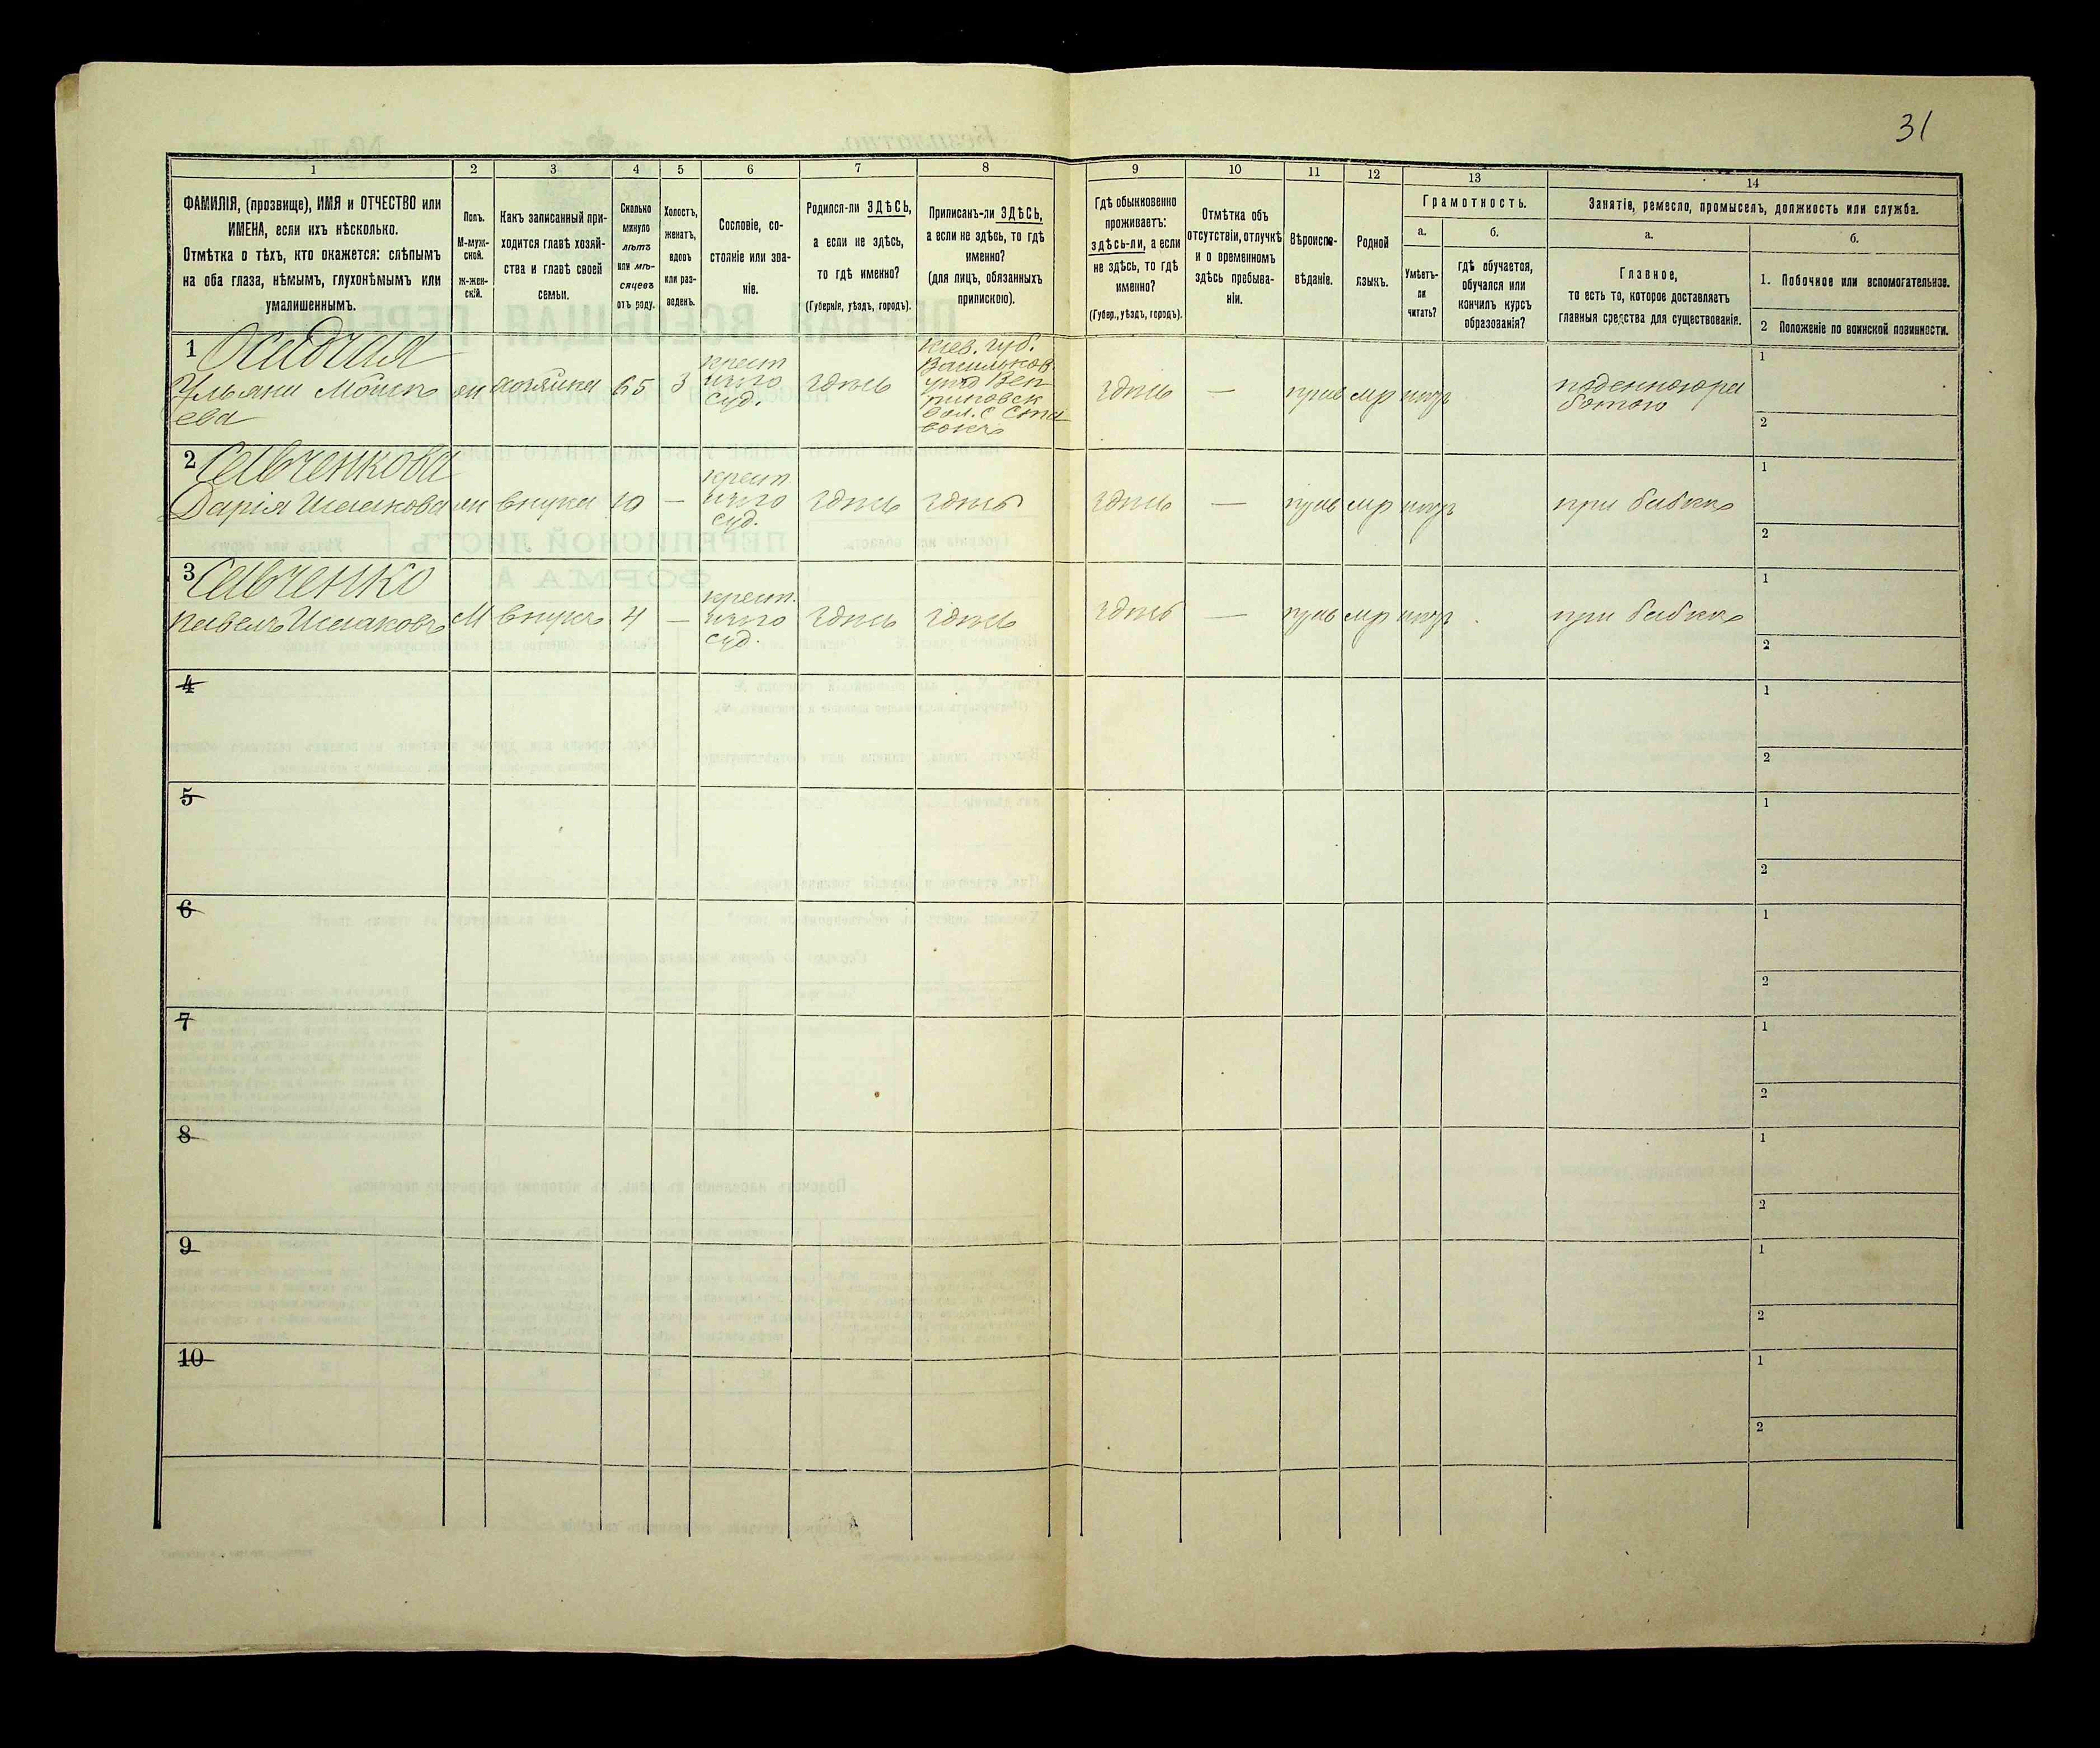 31
1
2
3
4
5
6
7
8
9
10
11
12
13
14
ФАМИЛІЯ, (прозвище), ИМЯ и ОТЧЕСТВО или
ИМЕНА, если ихъ нѣсколько.
Отмѣтка о тѣхъ, кто окажется: слѣпымъ
на оба глаза, нѣмымъ, глухонѣмымъ или
умалишеннымъ.
Полъ.
М-муж-
ской.
Ж-жен-
скій.
Какъ записанный при-
ходится главѣ хозяй-
ства и главѣ своей
семьи.
Сколько
минуло
лѣтъ
или мѣ-
сяцевъ
отъ роду.
Холостъ,
женатъ,
вдовъ
или раз-
веденъ.
Сословіе, со-
стояніе или зва-
ніе.
Родился-ли ЗДѢСЬ,
а если не здѣсь,
то гдѣ именно?
(Губернія, уѣздъ, городъ).
Приписанъ-ли ЗДѢСЬ,
а если не здѣсь, то гдѣ
именно?
(для лицъ, обязанныхъ
припискою).
Гдѣ обыкновенно
проживаетъ:
здѣсь-ли, а если
не здѣсь, то гдѣ
именно?
(Губер., уѣздъ, городъ).
Отмѣтка объ
отсутствіи, отлучкѣ
и о временномъ
здѣсь пребыва-
ніи.
Вѣроиспо-
вѣданіе.
Родной
языкъ.
Грамотность.
а.
Умѣетъ-
ли
читать?
б.
гдѣ обучается,
обучался или
кончилъ курсъ
образованія?
Занятіе, ремесло, промыселъ, должность или служба.
а.
Главное,
то есть то, которое доставляетъ
главныя средства для существованія.
б.
1. Побочное или вспомогательное.
2 Положеніе по воинской повинности.
1 Осадчая
Ульяни Мойсе
ева
хозяйка
65
3
крест
суд.
здѣсь
Кіев. губ.
Васильков.
вол. с
здѣсь
—
прав
мр
поденноюра
ботою
1
2
2 Савченкова
Дарія Исаакова
внучка
10
—
крест.
суд.
здѣсь
здѣсь
здѣсь
—
прав
мр
при бабкѣ
1
2
3 Савченко
Павелъ Исааковъ
М
внукъ
4
—
крест.
суд.
здѣсь
здѣсь
здѣсь
—
прав
мр
при бабкѣ
1
2
4
1
2
5
1
2
6
1
2
7
1
2
8
1
2
9
1
2
10
1
2